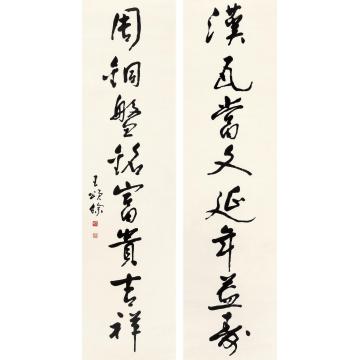 漢瓦當文延年益壽
周銅盤銘富貴吉祥
王頌餘